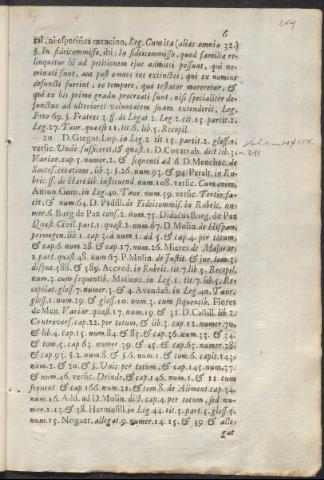 6
264
ral, ni especifica mencion, Leg. Cum ita (alias omnia 32.)
§. In fideicommisso, ibi: In fideicommisso, quod familia re-
linquitur hi ad petitionem ejus admitti possunt, qui no-
minati sunt, aut post omnes eos extinctos, qui ex nomine
defuncti fuerint, eo tempore, quo testator moreretur, &
qui ex his primo gradu procreati sunt, nisi specialiter de-
functus ad ulteriores voluntatem suam extenderit, Leg.
Peto 69. §. Fratres 3. ff. de Legat. 2. Leg. 2. tit. 15. partit. 2.
Leg. 27. Taur. quæ est 11. tit. 6. lib. 5. Recopil.
20 D. Gregor. Lop. in Leg. 2. tit. 15. partit. 2. gloss. 11.
versic. Unde sufficeret, & quæst. 1. D. Covarrub. dict. lib. 3.
Variar. cap. 5. numer. 2. & sequenti ad 6. D. Menchac. de
Success. creatione, lib. 3. §. 26. num. 93. & 94. Peralt. in Ru-
bric. ff. de Hæredib. instituend. num. 108. versic. Cum enim,
Anton. Gom. in Leg. 40. Taur. num. 59. versic. Tertio fa-
cit, & num. 64. D. Padill. de Fideicommis. in Rubric. nu-
mer. 6. Burg. de Paz cons. 2. num. 75. Didacus Burg. de Paz
Quæst. Civil. part. 1. quæst. 2. num. 67. D. Molin. de Hispan.
primogen. lib. 1. cap. 3. a num. 1. ad 5. & cap. 4. per totum,
& cap. 6. num. 28. & cap. 17. num. 26. Mieres de Majorat.
2. part. quæst. 48. num. 67. P. Molin. de Justit. & jur. tom. 3.
disput. 588. & 589. Aceved. in Rubric. tit. 7. lib. 5. Recopil.
num. 3. cum sequentib. Matienz. in Leg. 1. tit. 7. lib. 5. Re-
copilat. gloss. 7. numer. 3. & 4. Avendañ. in Leg. 40. Taur.
gloss. 1. num. 29. & gloss. 10. num. 3. cum sequentib. Flores
de Men. Variar. quæst. 17. num. 19. & 31. D. Castill. lib. 2.
Controvers. cap. 22. per totum, & lib. 3. cap. 12. numer. 70.
& lib. 4. cap. 15. num. 84. & 85. & cap. 36. num. 33. & 34.
& tom. 5. cap. 63. numer. 39. & 45. & cap. 65. numer. 38.
& cap. 93. §. 2. num. 8. & §. 6. num. 1. & tom. 6. capit. 143.
num. 2. & 20. & §. Unic. per totum, & cap. 145. num. 37.
& num. 46. versic. Deinde, & cap. 146. num. 1. & 11. cum
sequent. & cap. 166. num. 21. & tom. 8. de Aliment. cap. 34.
num. 16. Add. ad D. Molin. dict. cap. 4. per totum, sed nu-
mer. 1. 13. & 38. Hermosill. in Leg. 44. tit. 5. part. 5. gloss. 5.
num. 15. Noguer. allegat. 9. numer. 14. 25. & 39. & alle-
gat